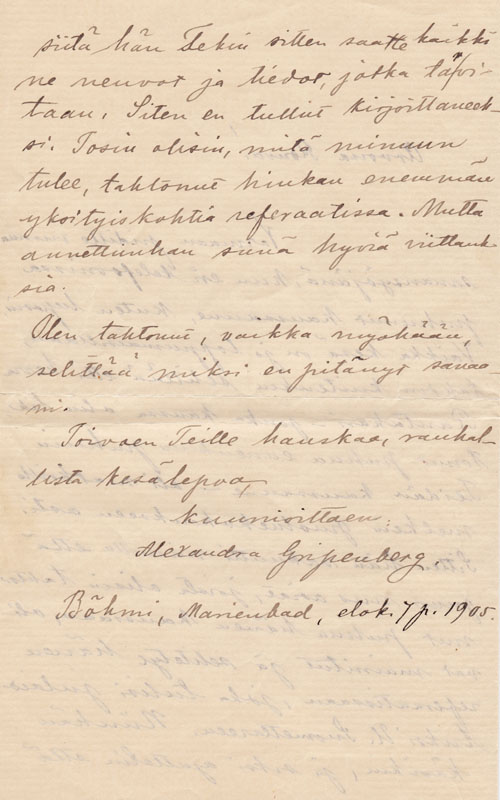 siitä hän Tekin sitten saatte kaikki
ne neuvot ja tiedot, jotka tarvi-
taan. Siten en tullut kirjoittaneek-
si. Tosin olisin, mitä minuun
tulee, tahtonut hiukan enemmän
yksityiskohtia referaatissa. Mutta
annettiinhan siinä hyviä viittauk-
sia.
Olen tahtonut, vaikka myöhään,
selittää miksi en pitänyt sanaa-
ni.
Toivoen Teille hauskaa, rauhal-
lista kesälepoa,
kunnioittaen
Alexandra Gripenberg
Böhmi, Marienbad, elok. 7 p. 1905.